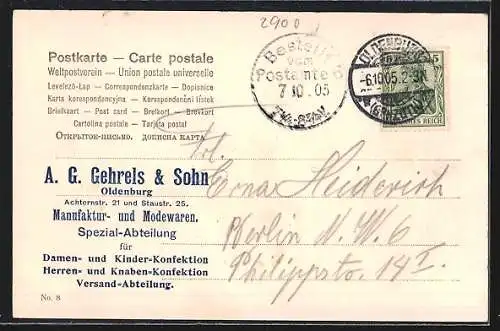 2900
Postkarte — Carte postale
Weltpostverein — Union postale universelle
Levelező-Lap — Correspondenzkarte — Dopisnice
Karta korespondencyjna — Korespondenční lístek
Brevkort — Post card — Brefkort — Brevkort
Cartolina postale — Tarjeta postal
Открытое письмо. Дописна карта
Bestellt
vom
Postamte 6
7 10. 05
OLDENBURG
-6.10.05.2-3N.
(GRHZGTH.)
5
REICH
A. G. Gehrels & Sohn
Oldenburg
Achternstr. 21 und Staustr. 25.
Manufaktur- und Modewaren.
Spezial-Abteilung
für
Damen- und Kinder-Konfektion
Herren- und Knaben-Konfektion
Versand-Abteilung.
No. 8
Frl.
Erna Heiderich
Berlin N. W. 6
Philippstr. 14 I.